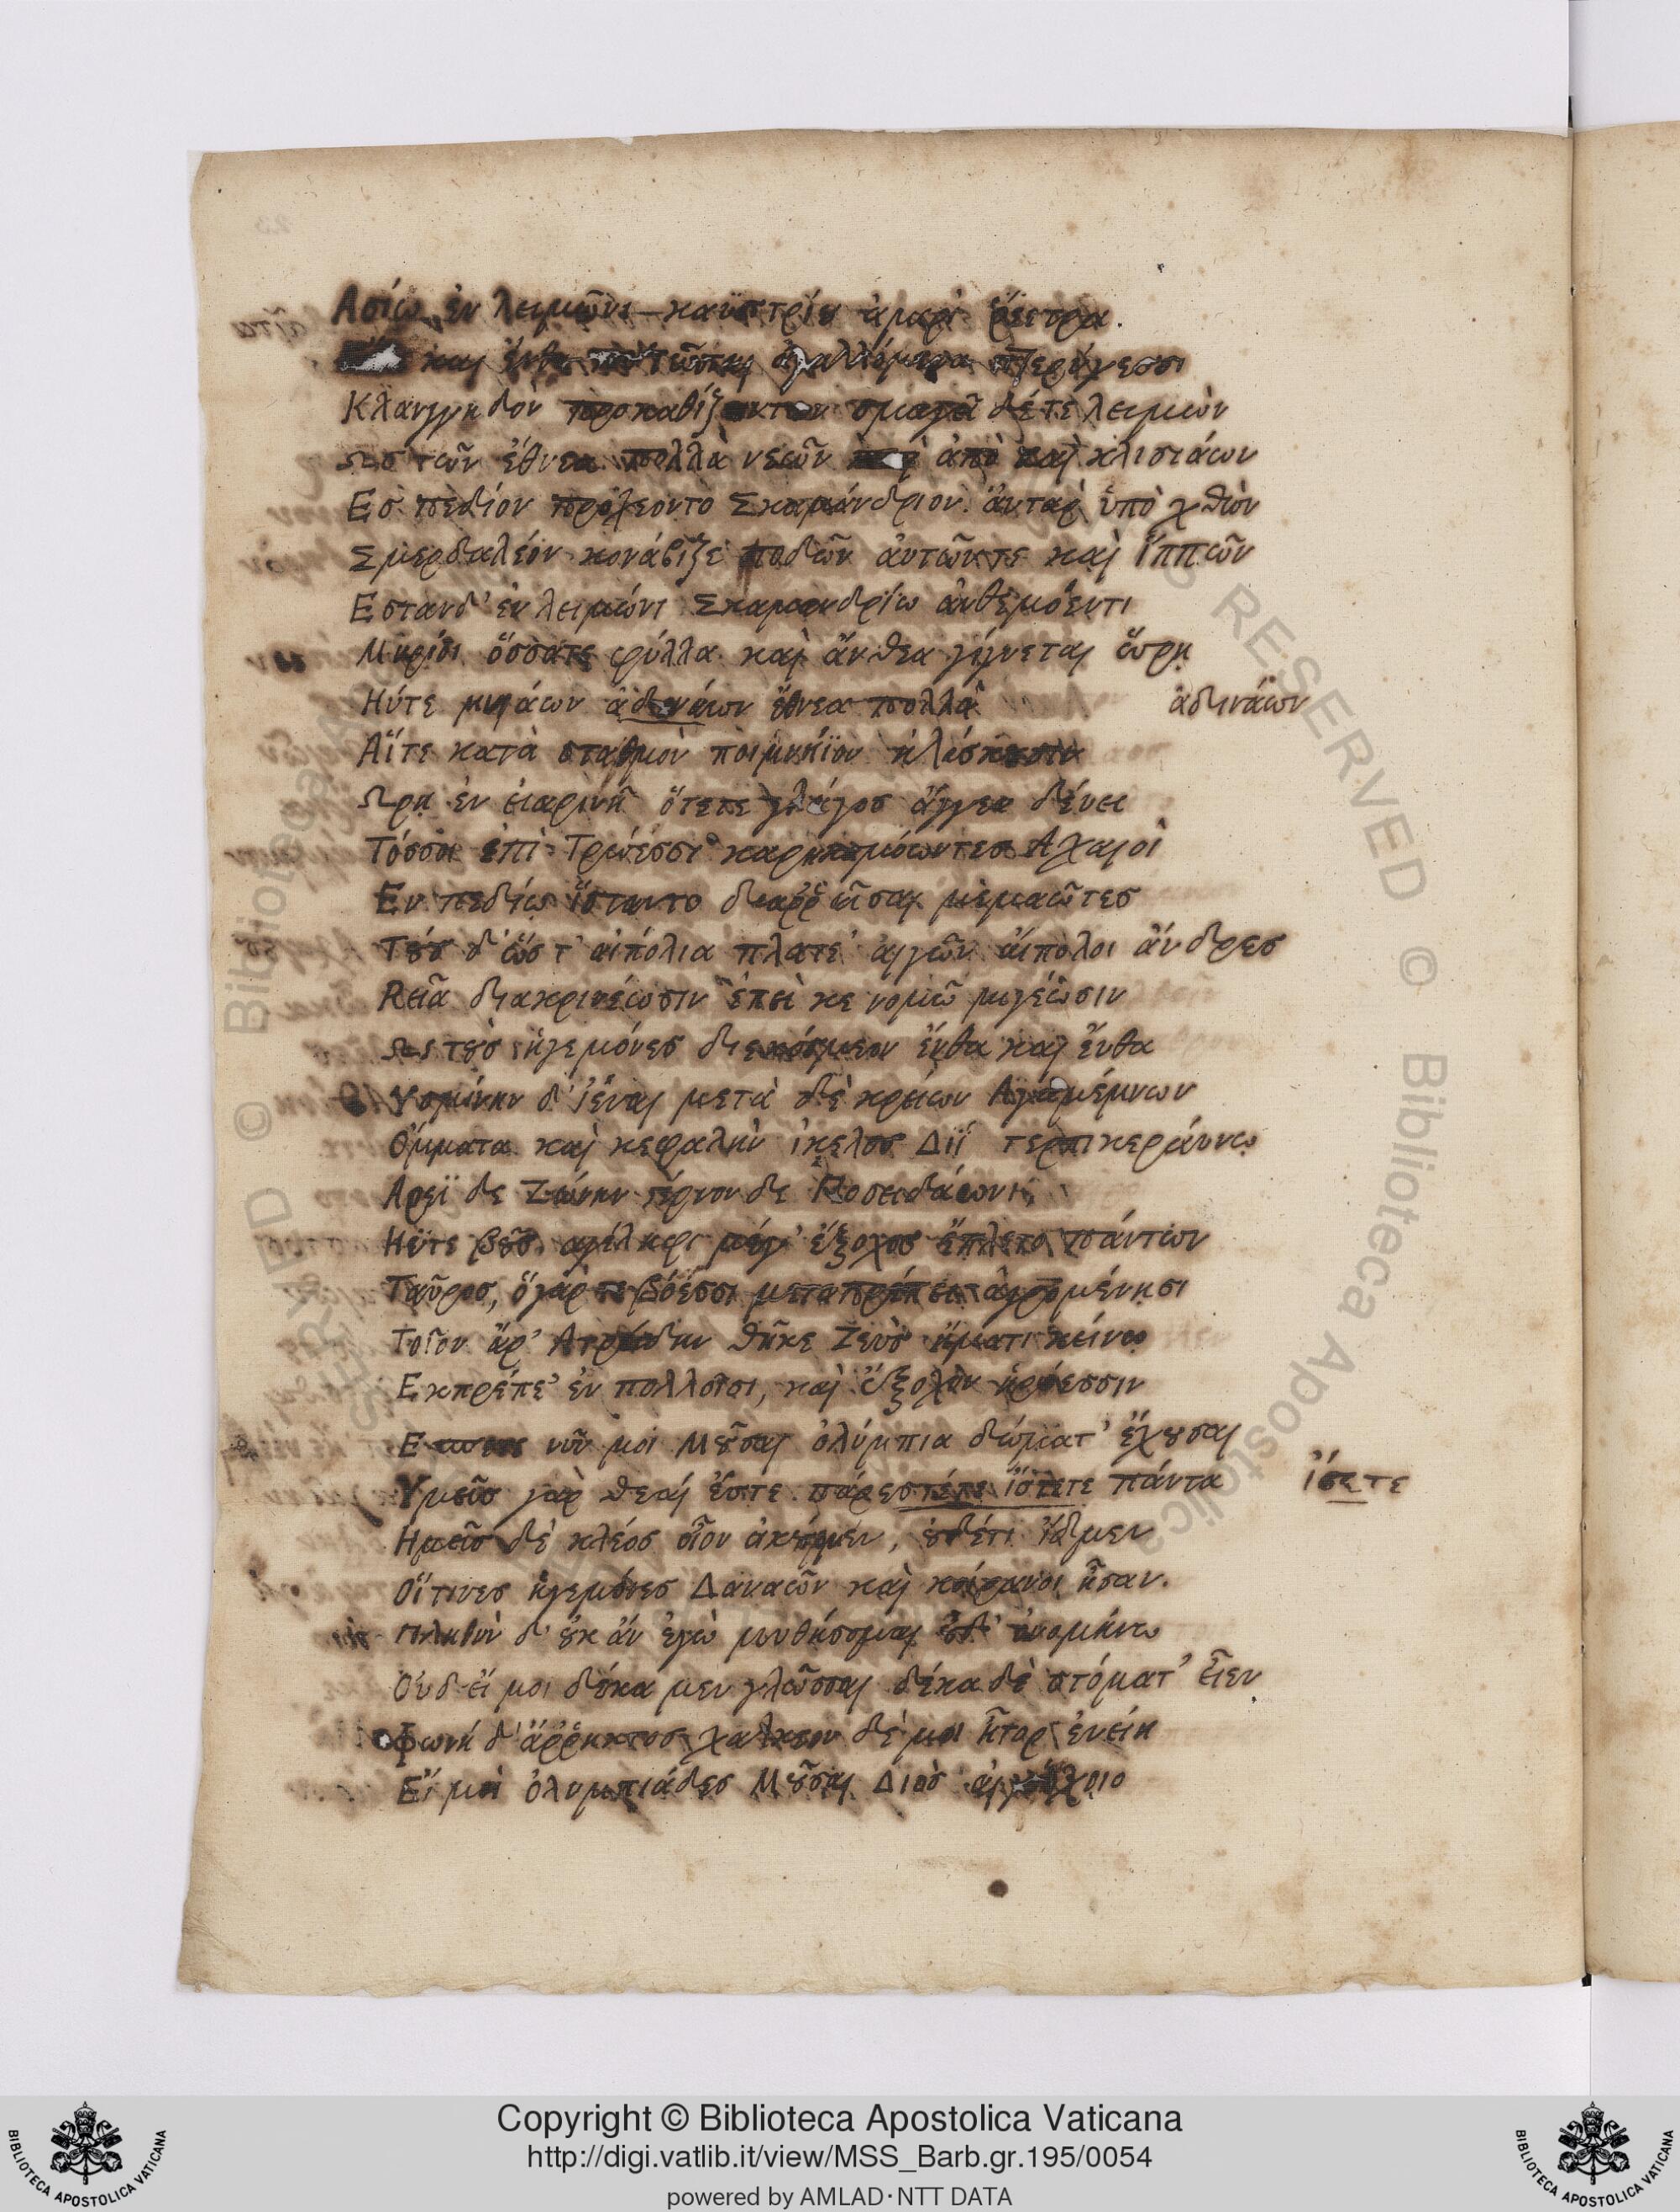 Ασίω ἐν λειμῶνι καϋστρίου ἀμφὶ ῥέεθρα.
καὶ ἔνθα ποτῶνται ἀγαλλόμενα πτερύγεσσι
Κλαγγηδον προκαθιζόντων σμαραγεῖ δέ τε λειμὼν
Ως τῶν ἔθνεα πολλὰ νεῶν ἀπὸ καὶ κλισιάων
Ες πεδίον προχέοντο Σκαμάνδριον. ἀυταρ ὑπὸ χθὼν
Σμερδαλέον κονάβιζε ποδῶν ἀυτῶν τε καὶ ἵππων
Εσταν δ' ἐν λειμώνι Σκαμανδρίω ἀνθεμόεντι
Μυρίοι ὅσσάτε φύλλα καὶ ἄνθεα γίγνεται ὥρῃ
Ηύτε μυιάων ἀδενάων ἔθνεα πολλὰ ἀδινάων
Αἵτε κατὰ σταθμὸν ποιμνήϊον ἠλάσκουσιν
Ωρῃ ἐν ειαρινῆ ὅτεπε γλάγος ἄγγεα δέυει
Τόσσοι ἐπὶ Τρώεσσι καρηκομόωντες Αχαιοὶ
Εν πεδίω ἵσταντο διαρῥαῖσαι μεμαῶτες
Τοὺς δ' ὥς τ' αἰπόλια πλατέ' αἰγῶν ἀίπόλοι ἄνδρες
Ρεῖα διακρινέωσιν ἐπεὶ κε νομῶ μιγέωσιν
Ως τοὺς ἡγεμόνες διεκόσμεον ἔνθα καὶ ἔνθα
Υσμίνην δ' ἰέναι μετὰ δὲ κρείων Αγαμέμνων
Ομματα καὶ κεφαλὴν ἰκελος Διῒ τερπικεράυνῳ
Αρεϊ δε Ζώνην στέρνον δε Ποσειδάωνι,
Ηϋτε βοῦς ἀγέληφι μέγ' ἔξοχος ἔπλετο πάντων
Ταῦρος, ὅγάρ τε βόεσσι μεταπρέπει ἀγρομένῃσι
Τοῖον ἄρ' Ατρείδην θῆκε Ζεὺς ἤματι κείνῳ
Εκπρέπε' ἐν πολλοῖσι, καὶ ἔξοχὸν ἡρώεσσιν
Εσπετε νῦν μοι Μοῦσαι ὀλύμπια δώματ' ἔχουσαι
Υμεῖς γὰρ θεαί ἐστε πάρεστέτε ἴστετε πάντα ἴσετε
Ημεῖς δὲ κλέος οἶον ἀκούομεν, οὐδέτι ἴδμεν
Οἵτινες ἡγεμόνες Δαναῶν καὶ κοίρανοι ἦσαν.
Πληθὺν δ' οὐκ ἄν ἐγὼ μυθήσομαι οὐδ' ὀνομήνω
Ουδ' εἴ μοι δέκα μεν γλῶσσαι δέκα δὲ στόματ' εἶεν
Φωνή δ' ἄῤῥηκτος χαλκεον δέ μοι ἦτορ ἐνείη
Εἴ μοὶ ὀλυμπιάδες Μοῦσαι Διὸς αἰγιόχοιο
Copyright © Biblioteca Apostolica Vaticana
http://digi.vatlib.it/view/MSS_Barb.gr.195/0054
powered by AMLAD·NTT DATA